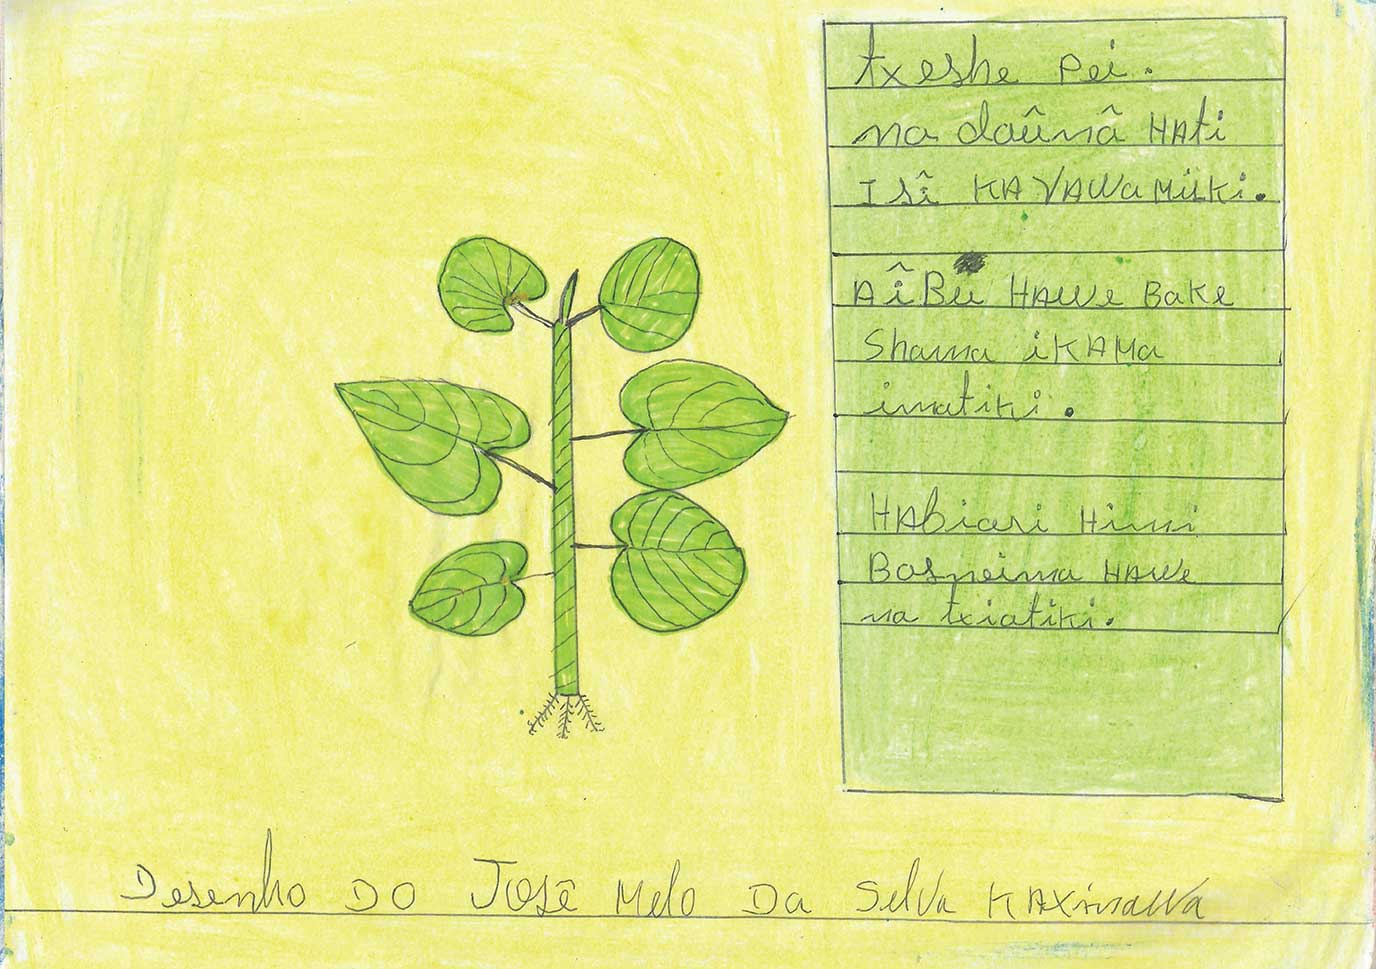 txeshe pei.
na daûnâ HAti
ISÎ KAYAWA MiSKi.
AÎBU HAWE BAKE
Shama iKAMA
imatiki.
HAbiasi Himi
HAWE
na txiatiki.
Desenho DO JOSÊ Melo DA Selva KAXinawa